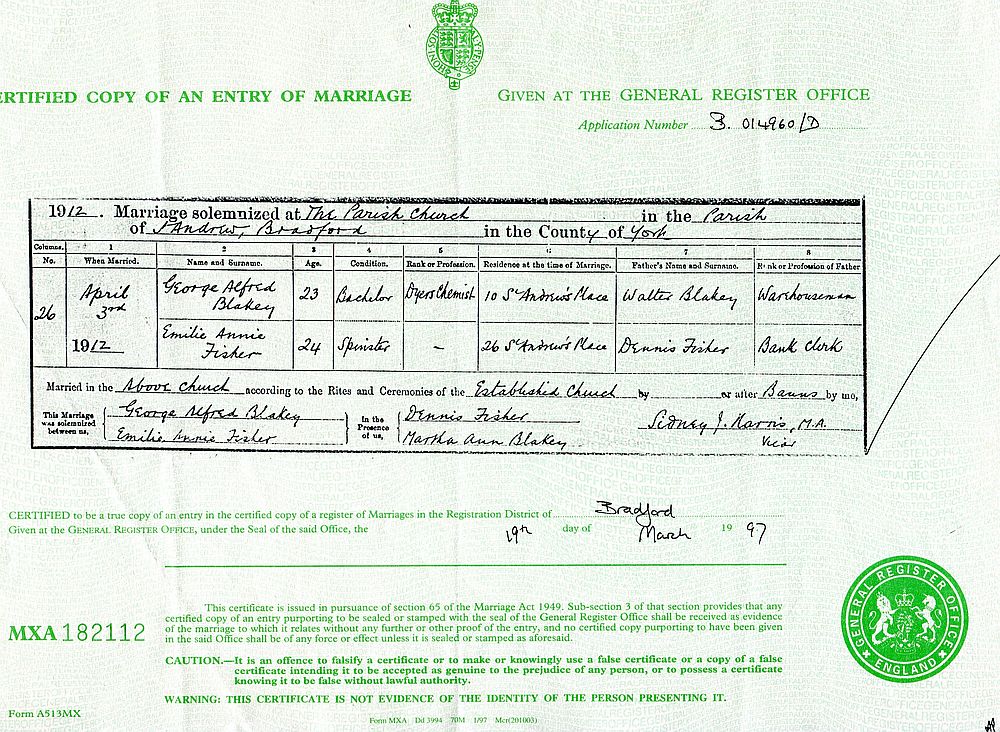 ERTIFIED COPY OF AN ENTRY OF MARRIAGE
GIVEN AT THE GENERAL REGISTER OFFICE
Application Number B. 014960/D
1912. Marriage solemnized at The Parish Church in the Parish
of St Andrew, Bradford in the County of York
Columns. 1 2 3 4 5 6 7 8
No. When Married. Name and Surname. Age. Condition. Rank or Profession. Residence at the time of Marriage. Father's Name and Surname. Rank or Profession of Father
26 April 3rd 1912 George Alfred Blakey 23 Bachelor Dyers Chemist 10 St Andrew's Place Walter Blakey Warehouseman
Emilie Annie Fisher 24 Spinster — 26 St Andrew's Place Dennis Fisher Bank Clerk
Married in the Above Church according to the Rites and Ceremonies of the Established Church by or after Banns by me,
This Marriage was solemnized between us, George Alfred Blakey In the Presence of us, Dennis Fisher Sidney J. Harris, M.A.
Emilie Annie Fisher Martha Ann Blakey Vicar
CERTIFIED to be a true copy of an entry in the certified copy of a register of Marriages in the Registration District of Bradford
Given at the GENERAL REGISTER OFFICE, under the Seal of the said Office, the 19th day of March 1997
MXA 182112
This certificate is issued in pursuance of section 65 of the Marriage Act 1949. Sub-section 3 of that section provides that any
certified copy of an entry purporting to be sealed or stamped with the seal of the General Register Office shall be received as evidence
of the marriage to which it relates without any further or other proof of the entry, and no certified copy purporting to have been given
in the said Office shall be of any force or effect unless it is sealed or stamped as aforesaid.
CAUTION.—It is an offence to falsify a certificate or to make or knowingly use a false certificate or a copy of a false
certificate intending it to be accepted as genuine to the prejudice of any person, or to possess a certificate
knowing it to be false without lawful authority.
WARNING: THIS CERTIFICATE IS NOT EVIDENCE OF THE IDENTITY OF THE PERSON PRESENTING IT.
GENERAL REGISTER OFFICE
ENGLAND
Form A513MX
Form MXA Dd 3994 70M 1/97 Mcr(201003)